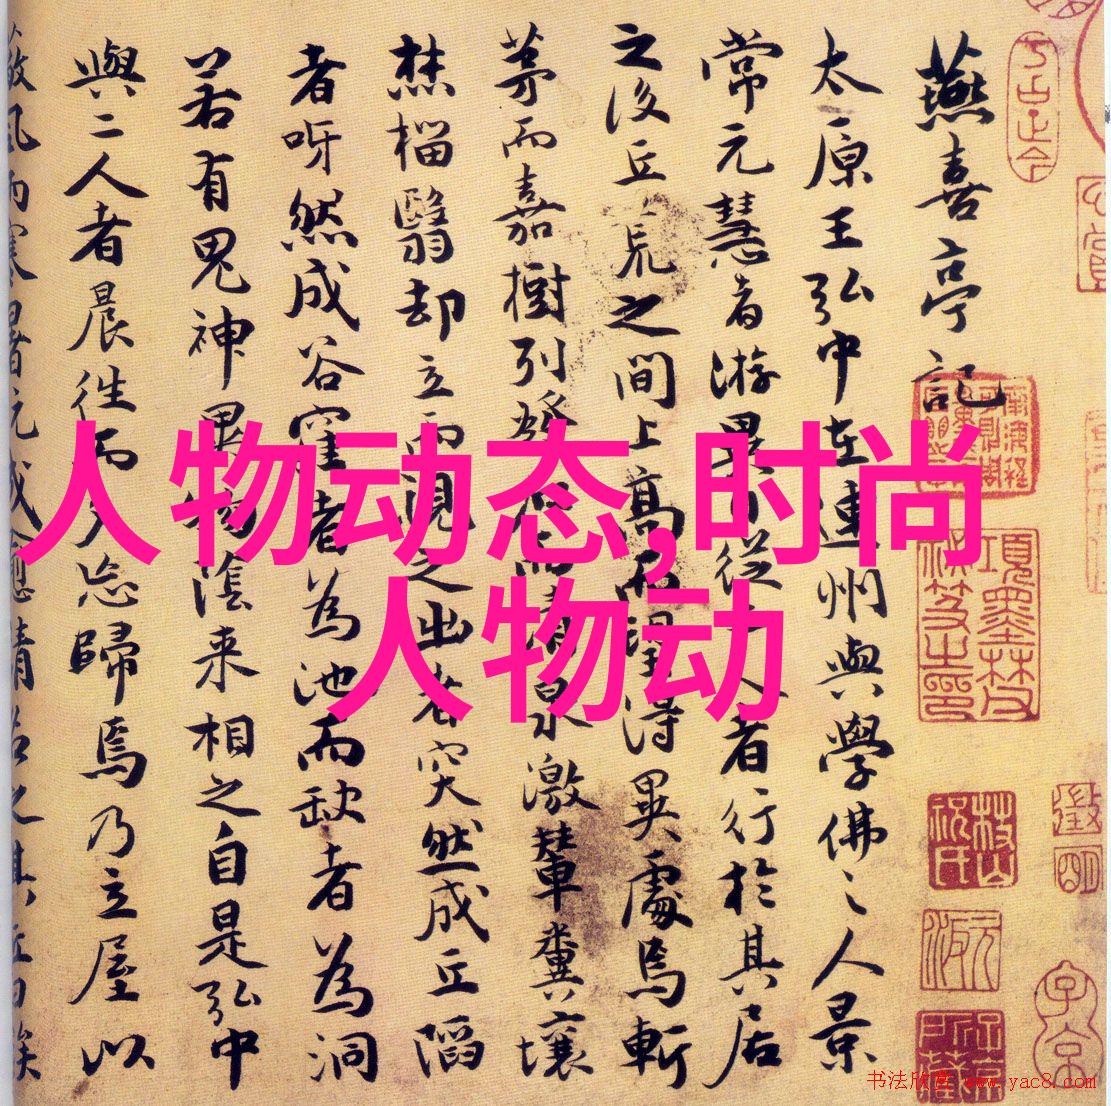 燕喜亭記
太原王弘中在連州與學佛之人景
常元慧者游異日從二人者行於其居
之後丘荒之間上高而望得異處焉斬
茅而嘉樹列發石而清泉激輦糞壤
椔翳却立而視之出者突然成丘陷
者呀然成谷窪者為池而缺者為洞
若有鬼神異物陰来相之自是弘中
與二人者晨往而夕忘歸焉乃立屋以
風雨寒暑既成愈請名之其丘曰竢
人物动态,时尚
人物动
书法欣赏 www.yac8.com